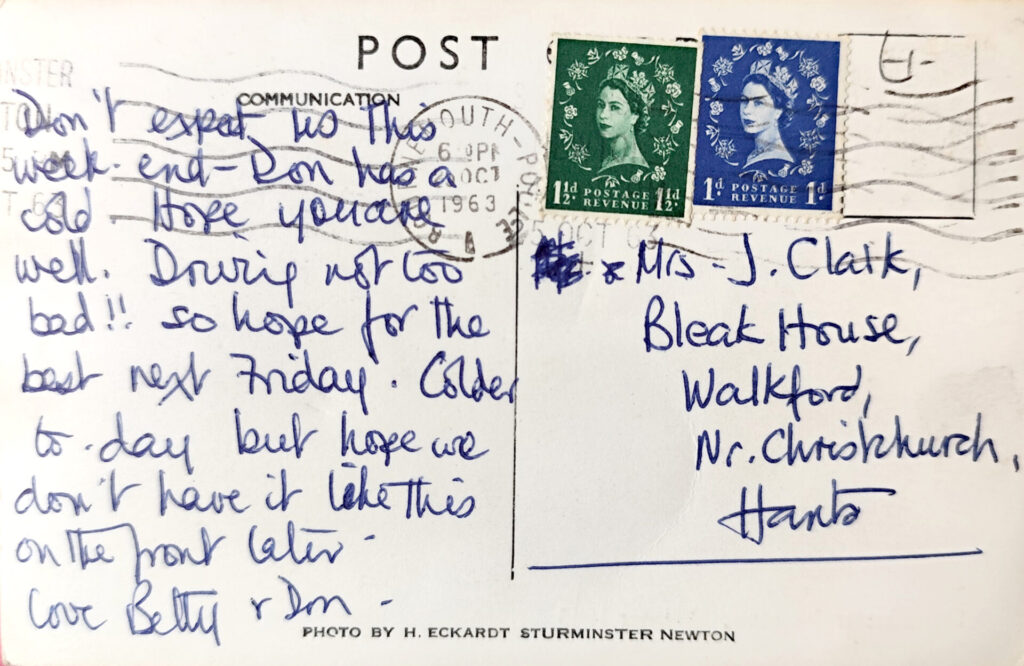 POST
COMMUNICATION
Don't expect us this
week-end - Don has a
cold. Hope you are
well. Driving not too
bad!! so hope for the
best next Friday. Colder
to-day but hope we
don't have it like this
on the front later -
Love Betty & Don -
1½d POSTAGE REVENUE 1½d
1d POSTAGE REVENUE 1d
OCT
1963
OCT 63
Mrs - J. Clark,
Bleak House,
Walkford,
Nr. Christchurch,
Hants
PHOTO BY H. ECKARDT STURMINSTER NEWTON